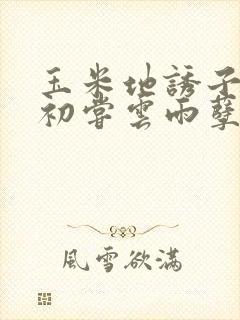 玉米地誘子
初嘗雲雨孽
風雪欲滿